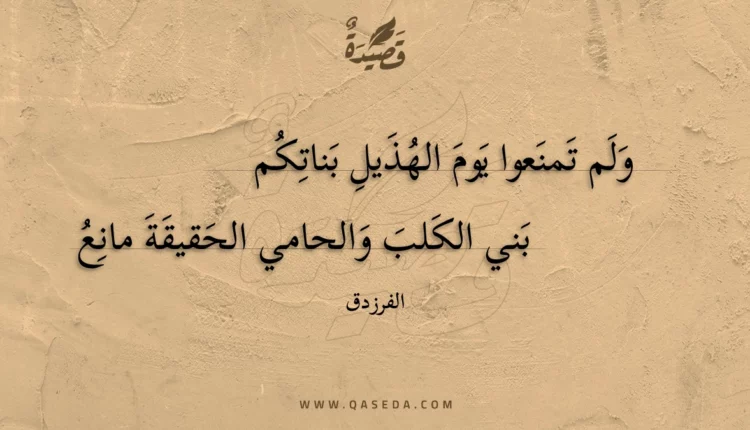 قَصِيْدَةٌ
وَلَم تَمنَعوا يَومَ الهُذَيلِ بَناتِكُم
بَني الكَلبَ وَالحامي الحَقيقَةَ مانِعُ
الفرزدق
WWW.QASEDA.COM